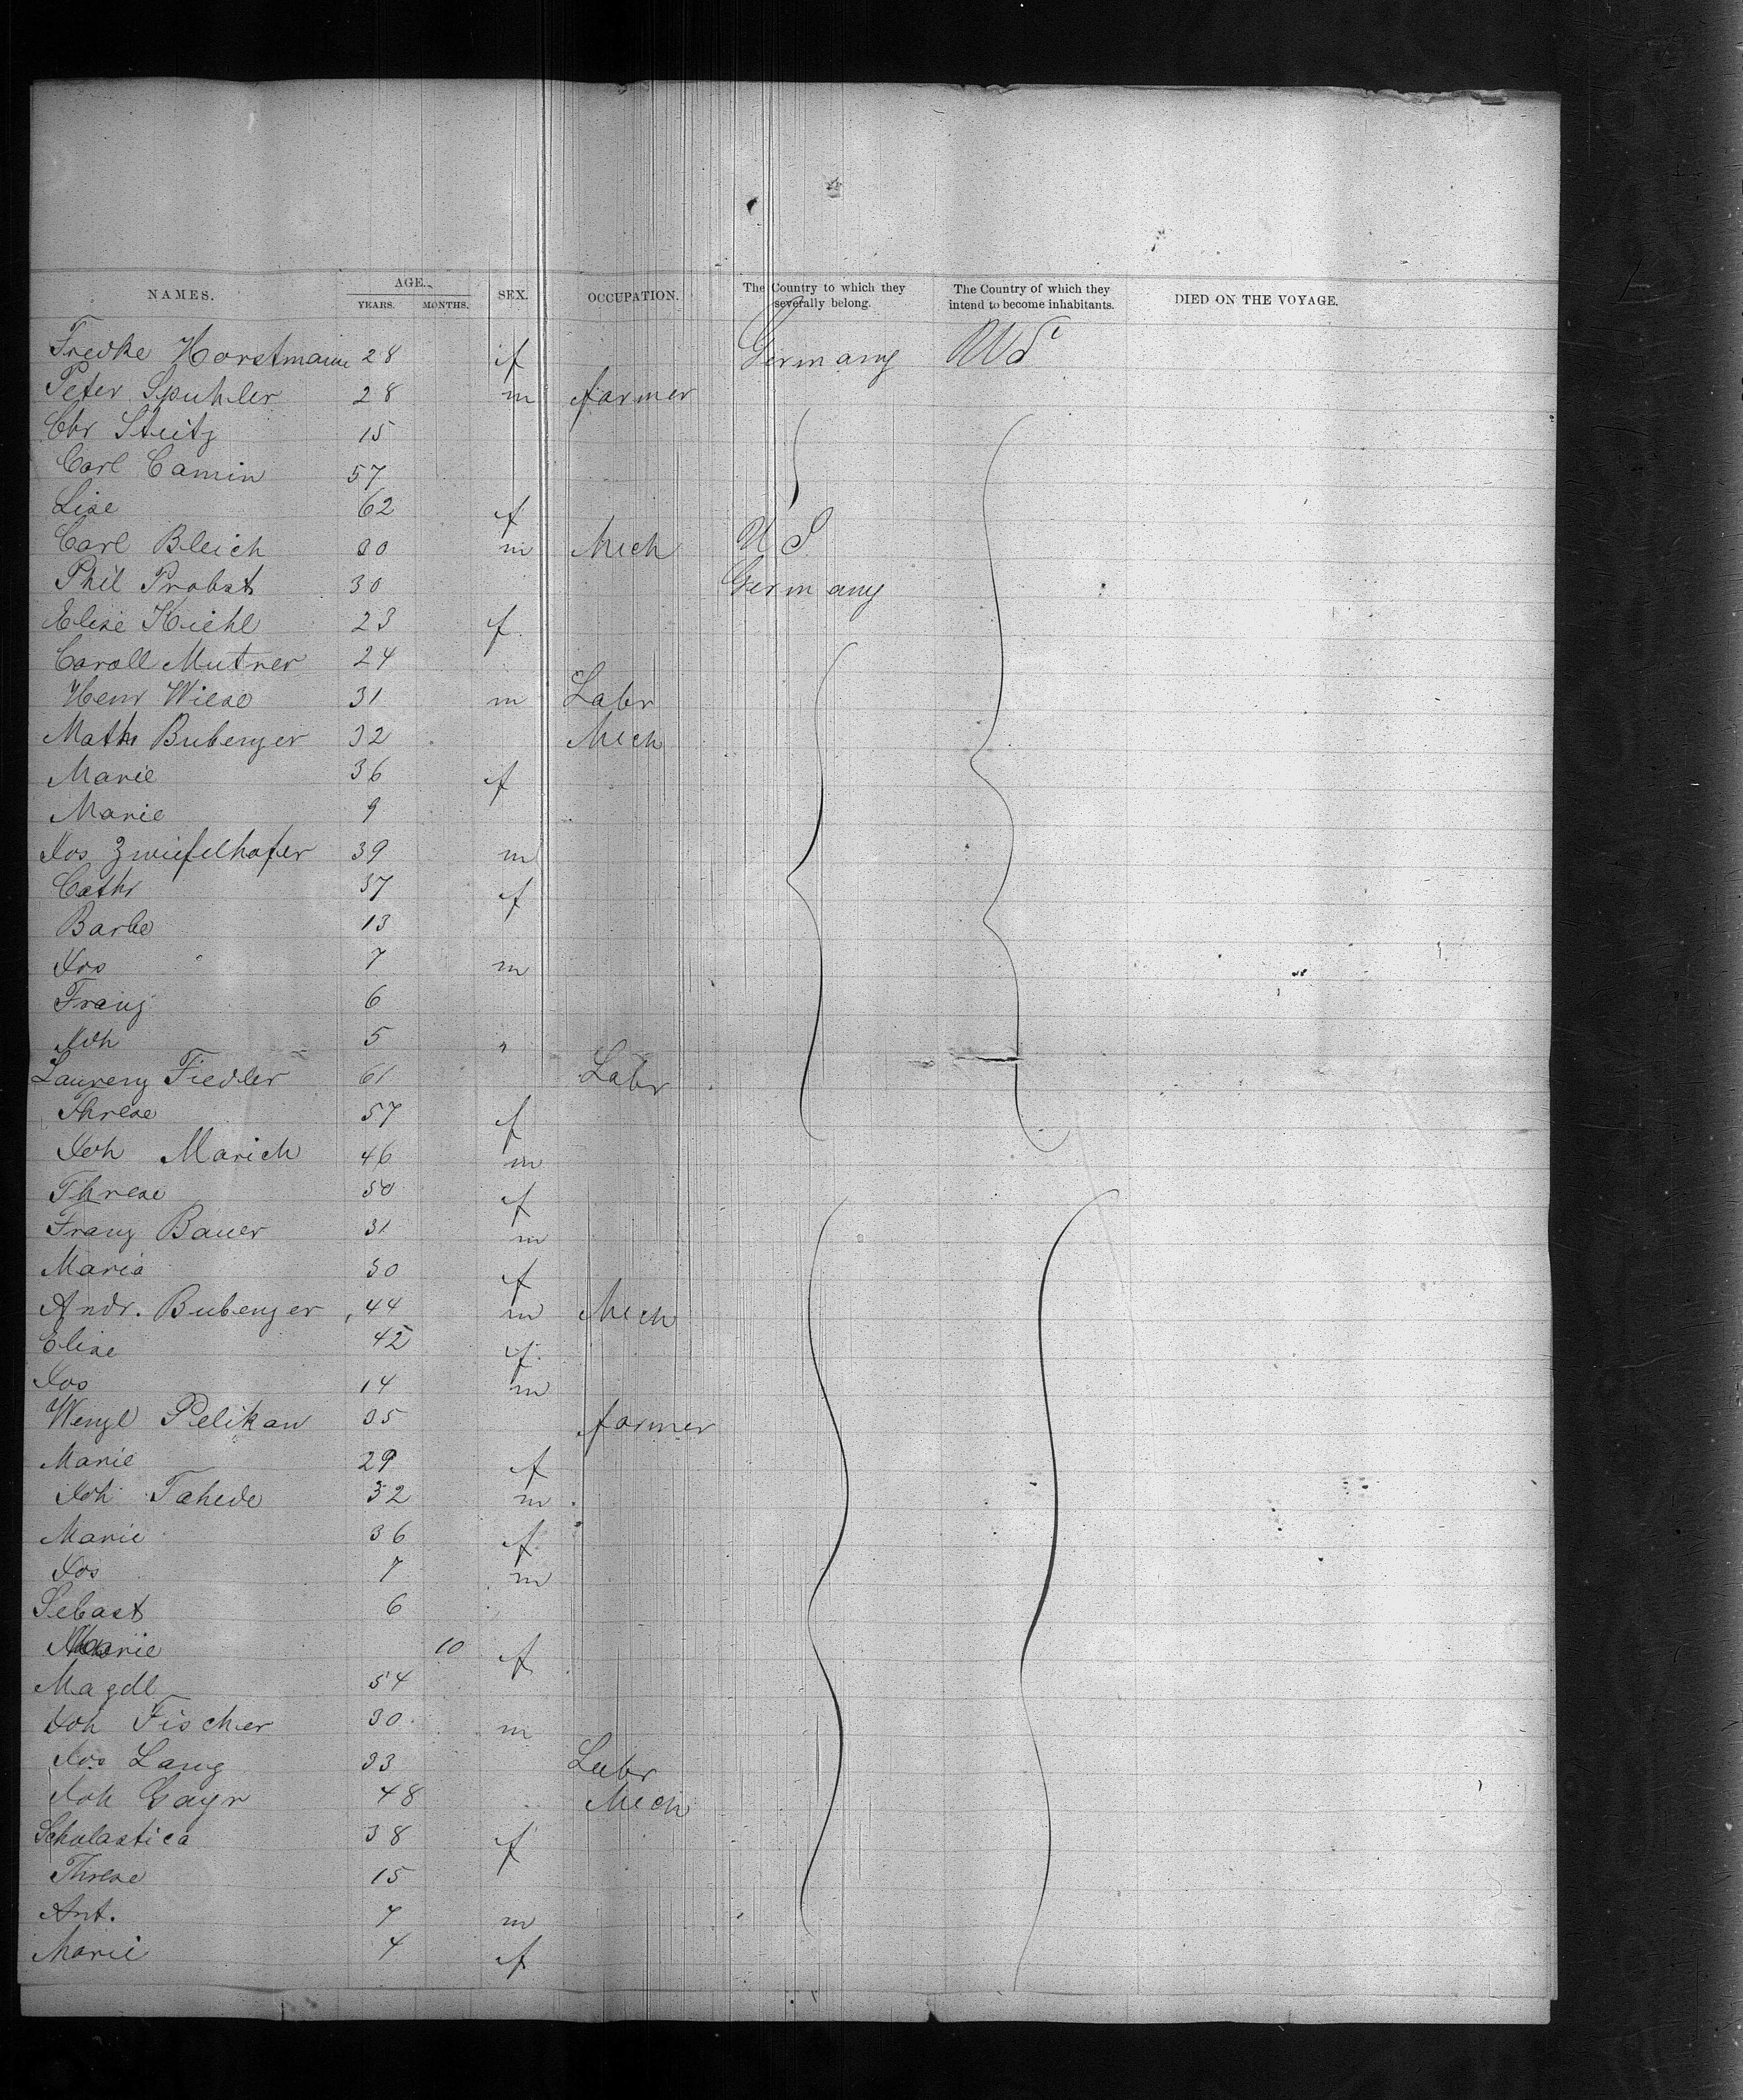 NAMES. AGE. YEARS. MONTHS. SEX. OCCUPATION. The Country to which they severally belong. The Country of which they intend to become inhabitants. DIED ON THE VOYAGE.
Fredke Horstmann 28 f Germany US
Peter Spuhler 28 m farmer
Chr Steitz 15
Carl Camin 57
Lise 62 f
Carl Bleich 30 m Mech U S
Phil Probst 30 Germany
Elise Kiehl 23 f
Caroll Mutner 24
Henr Wiese 31 m Labr
Math Bubenzer 32 Mech
Marie 36 f
Marie 9
Jos Zwiefelhofer 39 m
Cath 37 f
Barbe 13
Jos 7 m
Franz 6
Joh 5 "
Laurenz Fiedler 61 Labr
Threse 57 f
Joh Marich 46 m
Threse 50 f
Franz Bauer 31 m
Maria 30 f
Andr. Bubenzer 44 m Mech
Elise 42 f
Jos 14 m
Wenzl Pelikan 35 farmer
Marie 29 f
Joh Tahede 32 m
Marie 36 f
Jos 7 m
Sebast 6
Marie 10 f
Magdl 54
Joh Fischer 30 m
Jos Lang 33 Labr
Joh Gayr 48 Mech
Scholastica 38 f
Threse 15
Ant. 7 m
Marie 4 f